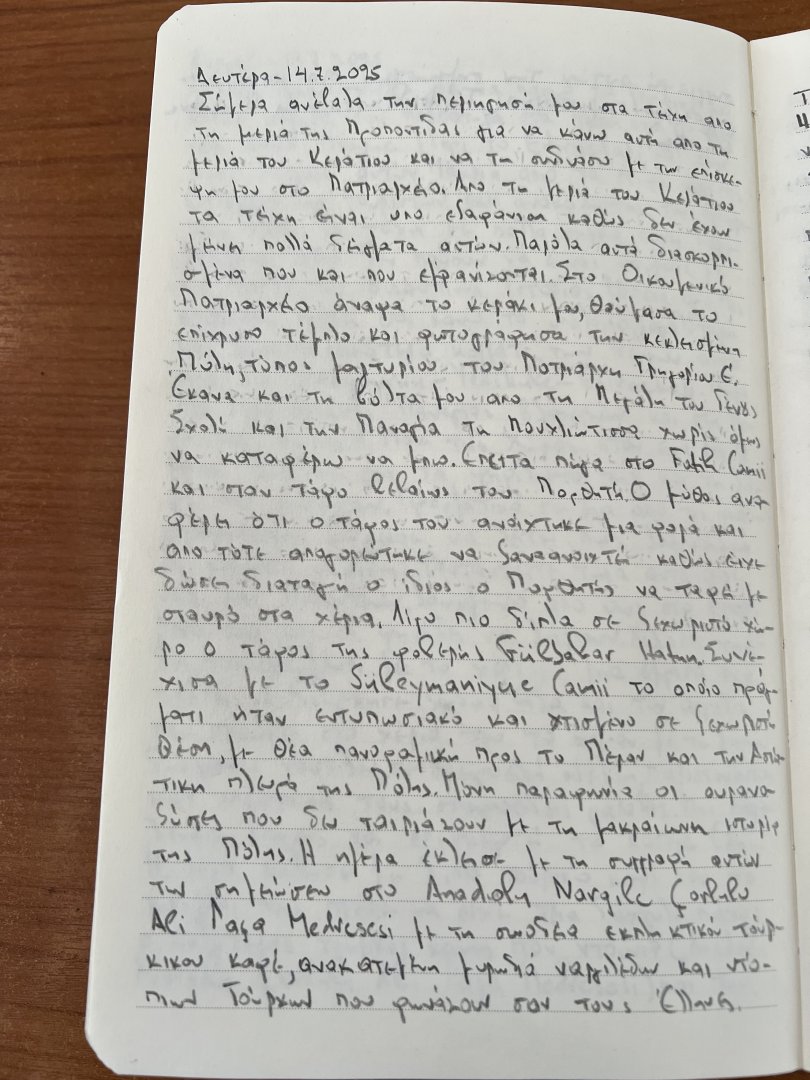 Δευτέρα - 14.7.2025
Σήμερα ανέβαλα την περιήγησή μου στα τείχη απο
τη μεριά της Προποντίδας για να κάνω αυτή απο τη
μεριά του Κεράτιου και να τη συνδυάσω με την επίσκε-
ψη μου στο Πατριαρχείο. Απο τη μεριά του Κεράτιου
τα τείχη είναι υπο εξαφάνιση καθώς δεν έχουν
μείνει πολλά δείγματα αυτών. Παρόλα αυτά διασκορπι-
σμένα που και που εμφανίζονται. Στο Οικουμενικό
Πατριαρχείο άναψα το κεράκι μου, θαύμασα το
επίχρυσο τέμπλο και φωτογράφησα την κεκλεισμένη
Πύλη, τόπος μαρτυρίου του Πατριάρχη Γρηγορίου Ε.
Έκανα και τη βόλτα μου απο τη Μεγάλη του Γένους
Σχολή και την Παναγία τη Μουχλιώτισσα χωρίς όμως
να καταφέρω να μπω. Έπειτα πήγα στο Fatih Camii
και στον τάφο βεβαίως του Πορθητή. Ο μύθος ανα-
φέρει ότι ο τάφος του ανοίχτηκε μια φορά και
απο τότε απαγορεύτηκε να ξαναανοιχτεί καθώς είχε
δώσει διαταγή ο ίδιος ο Πορθητής να ταφεί με
σταυρό στα χέρια. Λίγο πιο δίπλα σε ξεχωριστό χώ-
ρο ο τάφος της φοβερής Gülbahar Hatun. Συνέ-
χισα με το Süleymaniye Camii το οποίο πράγ-
ματι ήταν εντυπωσιακό και χτισμένο σε ξεχωριστή
θέση, με θέα πανοραμική προς το Πέραν και την Ασια-
τική πλευρά της Πόλης. Μόνη παραφωνία οι ουρανο-
ξύστες που δεν ταιριάζουν με τη μακραίωνη ιστορία
της Πόλης. Η ημέρα έκλεισε με τη συγγραφή αυτών
των σημειώσεων στο Anadolu Nargile Çorlulu
Ali Paşa Medresesi με τη συνοδεία εκπληκτικού τούρ-
κικου καφέ, ανακατεμένη μυρωδιά ναργιλέδων και ντό-
πιων Τούρκων που φωνάζουν σαν τους Έλληνες.